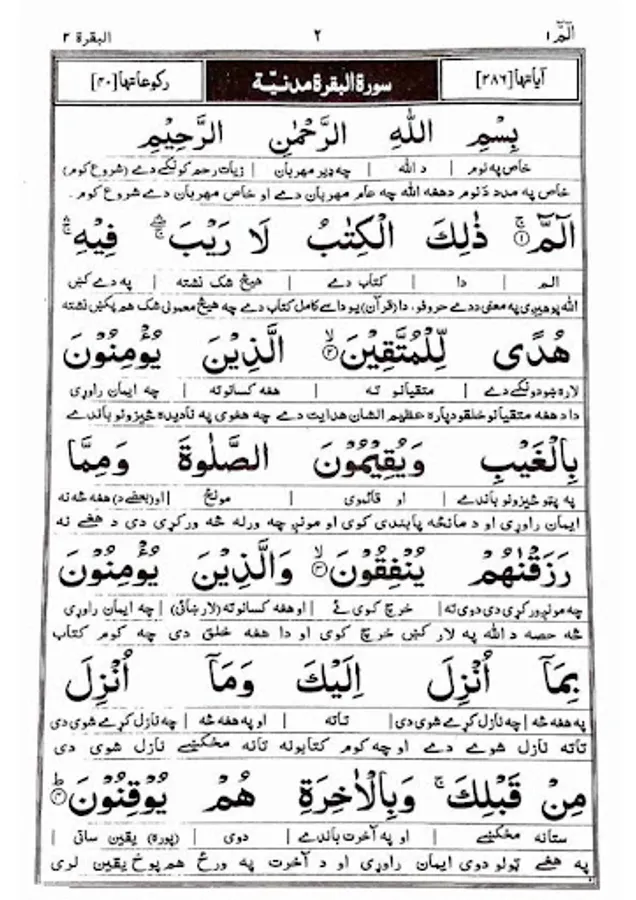 الٓمّٓ ١ ٢ البقرة ٢
آياتها [٢٨٦] سورة البقرة مدنيّة ركوعاتها [٤٠]
بِسْمِ اللّٰهِ الرَّحْمٰنِ الرَّحِيْمِ
خاص په نوم | د الله | چه ډير مهربان | زيات رحم كونكے دے (شروع كوم)
خاص په مدد دَ نوم دهغه الله چه عام مهربان دے او خاص مهربان دے شروع كوم.
الٓمّٓ ۚ۝١ ذٰلِكَ الْكِتٰبُ لَا رَيْبَ ۛۚ فِيْهِ ۛۚ
الم | دا | كتاب دے | هيڅ شک نشته | په دے كښ
الله پوهيږي په معنى ددے حروفو، دا (قرآن) يو داسے كامل كتاب دے چه هيڅ معمولى شک هم پكښ نشته
هُدًى لِّلْمُتَّقِيْنَ ۙ۝٢ الَّذِيْنَ يُؤْمِنُوْنَ
لاره ښودونكے دے | متقيانو ته | هغه كسانو ته | چه ايمان راوړى
دا د هغه متقيانو خلقو دپاره عظيم الشان هدايت دے چه هغوى په ناديده څيزونو باندے
بِالْغَيْبِ وَيُقِيْمُوْنَ الصَّلٰوةَ وَمِمَّا
په پټو څيزونو باندے | او قائموى | مونځ | او (بعضے د) هغه څه نه
ايمان راوړى او د مانځه پابندى كوى او مونږ چه ورله څه وركړى دى د هغے نه
رَزَقْنٰهُمْ يُنْفِقُوْنَ ۙ۝٣ وَالَّذِيْنَ يُؤْمِنُوْنَ
چه مونږ وركړى دى دوى ته | خرچ كوى ئے | او هغه كسانو ته (لار ښائى) | چه ايمان راوړى
څه حصه د الله په لار كښ خرچ كوى او دا هغه خلق دى چه كوم كتاب
بِمَآ اُنْزِلَ اِلَيْكَ وَمَآ اُنْزِلَ
په هغه څه | چه نازل كړے شوى دى | تاته | او په هغه څه | چه نازل كړے شوى دى
تاته نازل شوے دے او چه كوم كتابونه تانه مخكښے نازل شوى دى
مِنْ قَبْلِكَ ۚ وَبِالْاٰخِرَةِ هُمْ يُوْقِنُوْنَ ؕ۝٤
ستانه مخكښے | او په آخرت باندے | دوى | (پوره) يقين ساتى
په هغے ټولو دوى ايمان راوړى او د آخرت په ورځ هم پوخ يقين لرى